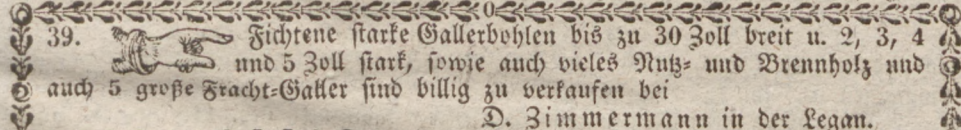 39. Fichtene starke Gallerbohlen bis zu 30 Zoll breit u. 2, 3, 4
und 5 Zoll stark, sowie auch vieles Nutz- und Brennholz und
auch 5 große Fracht-Galler sind billig zu verkaufen bei
D. Zimmermann in der Legan.